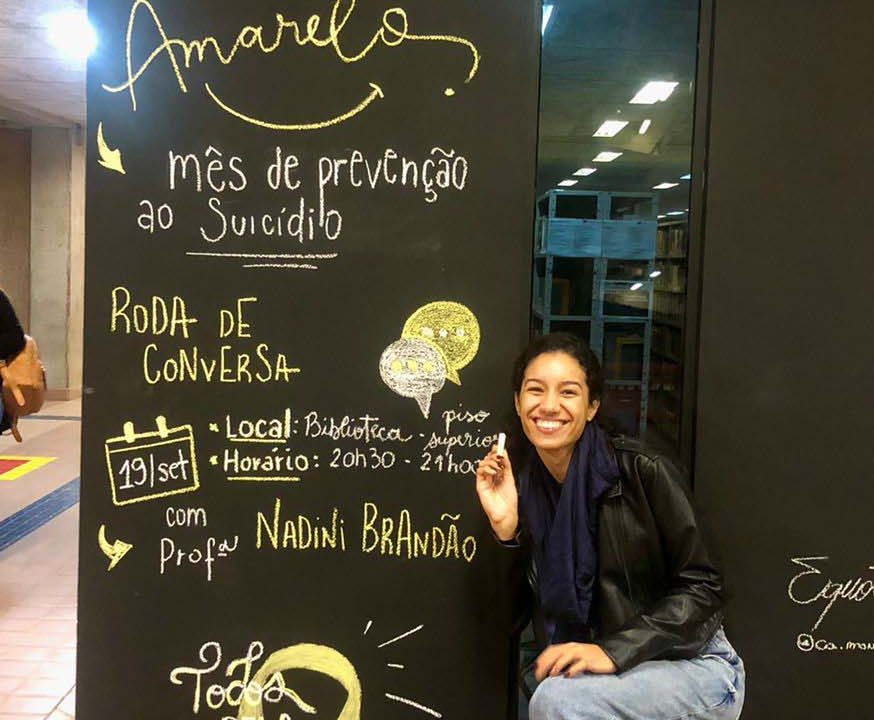 Amarelo
mês de prevenção
ao Suicídio
RODA DE
CONVERSA
19/set
* Local: Biblioteca - piso
superior
* Horário: 20h30 - 21h00
com
Profª NADINI BRANDÃO
Todos